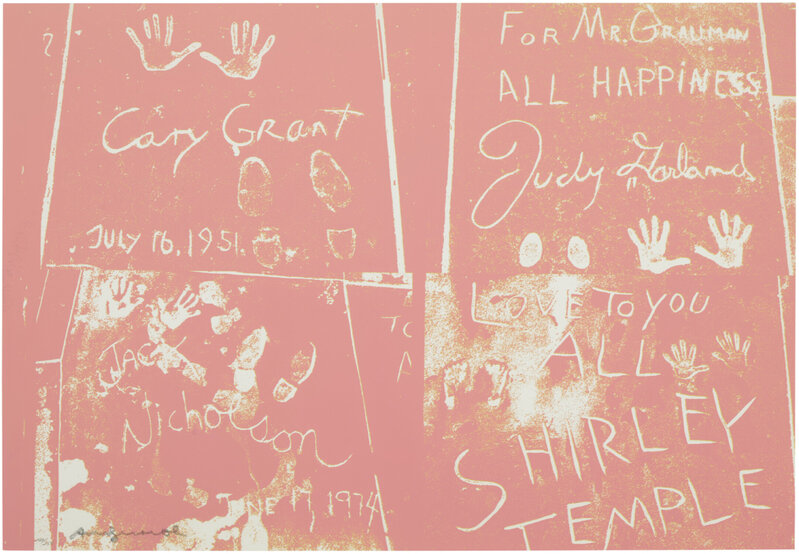 Cary Grant
JULY 16, 1951.
FOR MR. GRAUMAN
ALL HAPPINESS
Judy Garland
JACK
Nicholson
JUNE 17 1974
LOVE TO YOU
ALL
SHIRLEY
TEMPLE